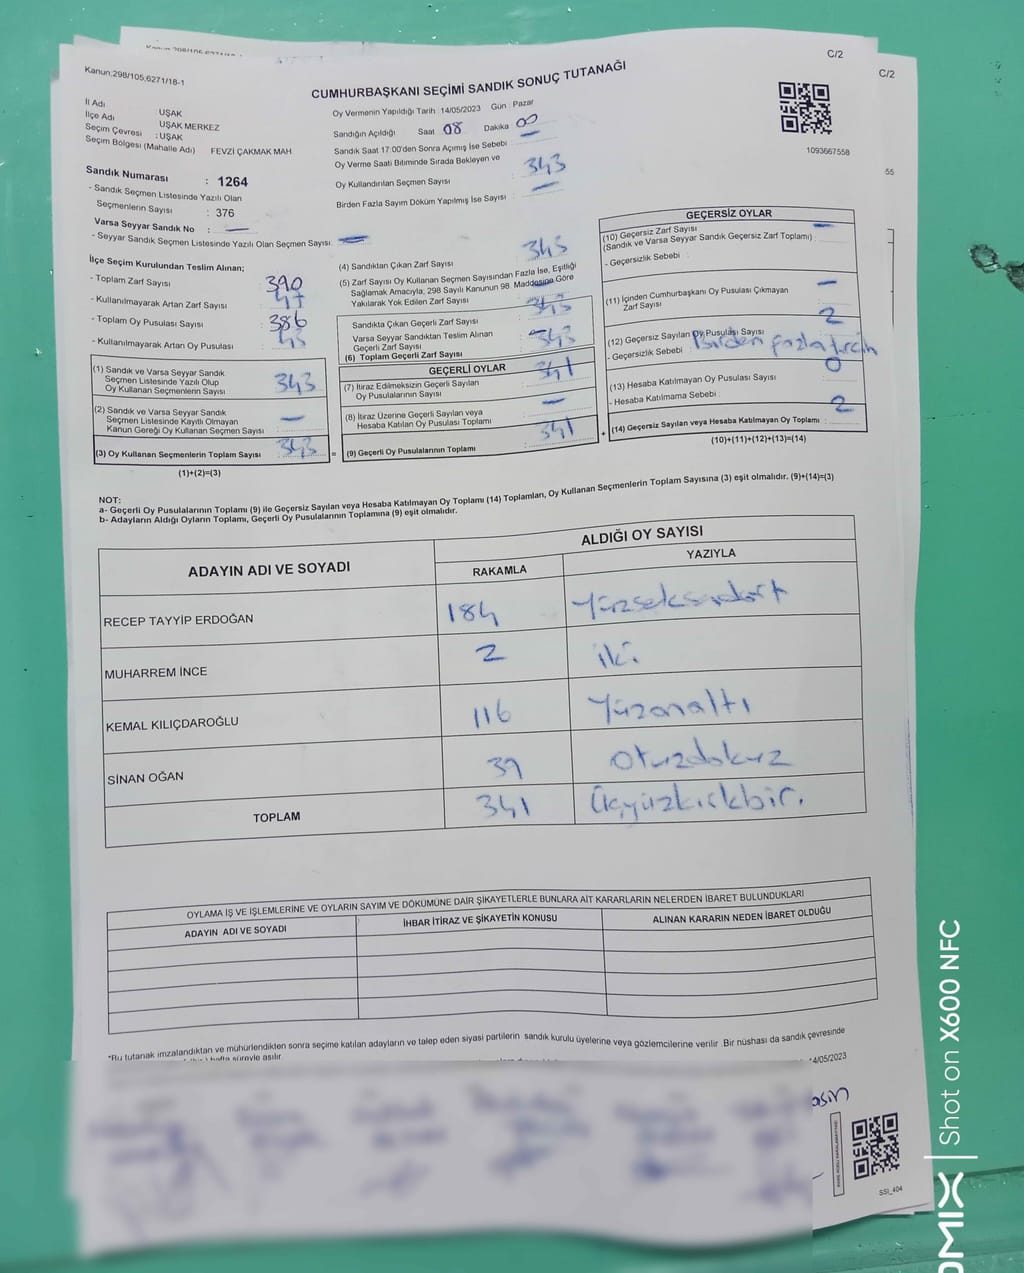 C/2
C/2
Kanun;298/105,6271/18-1
CUMHURBAŞKANI SEÇİMİ SANDIK SONUÇ TUTANAĞI
İl Adı : UŞAK
İlçe Adı UŞAK MERKEZ
Seçim Çevresi : UŞAK
Seçim Bölgesi (Mahalle Adı) FEVZİ ÇAKMAK MAH
Sandık Numarası : 1264
- Sandık Seçmen Listesinde Yazılı Olan
Seçmenlerin Sayısı : 376
Varsa Seyyar Sandık No : —
- Seyyar Sandık Seçmen Listesinde Yazılı Olan Seçmen Sayısı: —
Oy Vermenin Yapıldığı Tarih : 14/05/2023 Gün : Pazar
Sandığın Açıldığı Saat : 08 Dakika : 00
Sandık Saat 17:00'den Sonra Açımış İse Sebebi —
Oy Verme Saati Bitiminde Sırada Bekleyen ve
Oy Kullandırılan Seçmen Sayısı : 343
Birden Fazla Sayım Döküm Yapılmış İse Sayısı : —
1093667558
55
İlçe Seçim Kurulundan Teslim Alınan;
- Toplam Zarf Sayısı : 390
- Kullanılmayarak Artan Zarf Sayısı : 47
- Toplam Oy Pusulası Sayısı : 386
- Kullanılmayarak Artan Oy Pusulası : 43
(1) Sandık ve Varsa Seyyar Sandık
Seçmen Listesinde Yazılı Olup
Oy Kullanan Seçmenlerin Sayısı : 343
(2) Sandık ve Varsa Seyyar Sandık
Seçmen Listesinde Kayıtlı Olmayan
Kanun Gereği Oy Kullanan Seçmen Sayısı : —
(3) Oy Kullanan Seçmenlerin Toplam Sayısı : 343
(1)+(2)=(3)
(4) Sandıktan Çıkan Zarf Sayısı : 343
(5) Zarf Sayısı Oy Kullanan Seçmen Sayısından Fazla İse, Eşitliği
Sağlamak Amacıyla, 298 Sayılı Kanunun 98. Maddesine Göre
Yakılarak Yok Edilen Zarf Sayısı : —
Sandıkta Çıkan Geçerli Zarf Sayısı : 343
Varsa Seyyar Sandıktan Teslim Alınan
Geçerli Zarf Sayısı : —
(6) Toplam Geçerli Zarf Sayısı : 343
GEÇERLİ OYLAR
(7) İtiraz Edilmeksizin Geçerli Sayılan
Oy Pusulalarının Sayısı : 341
(8) İtiraz Üzerine Geçerli Sayılan veya
Hesaba Katılan Oy Pusulası Toplamı : —
= (9) Geçerli Oy Pusulalarının Toplamı : 341
GEÇERSİZ OYLAR
(10) Geçersiz Zarf Sayısı
(Sandık ve Varsa Seyyar Sandık Geçersiz Zarf Toplamı) : —
- Geçersizlik Sebebi :
(11) İçinden Cumhurbaşkanı Oy Pusulası Çıkmayan
Zarf Sayısı : —
(12) Geçersiz Sayılan Oy Pusulası Sayısı : 2
- Geçersizlik Sebebi : Birden fazla tercih
(13) Hesaba Katılmayan Oy Pusulası Sayısı : 0
- Hesaba Katılmama Sebebi :
+ (14) Geçersiz Sayılan veya Hesaba Katılmayan Oy Toplamı : 2
(10)+(11)+(12)+(13)=(14)
NOT:
a- Geçerli Oy Pusulalarının Toplamı (9) ile Geçersiz Sayılan veya Hesaba Katılmayan Oy Toplamı (14) Toplamları, Oy Kullanan Seçmenlerin Toplam Sayısına (3) eşit olmalıdır. (9)+(14)=(3)
b- Adayların Aldığı Oyların Toplamı, Geçerli Oy Pusulalarının Toplamına (9) eşit olmalıdır.
ADAYIN ADI VE SOYADI ALDIĞI OY SAYISI
RAKAMLA YAZIYLA
RECEP TAYYİP ERDOĞAN 184 Yüzseksendört
MUHARREM İNCE 2 iki
KEMAL KILIÇDAROĞLU 116 Yüzonaltı
SİNAN OĞAN 39 Otuzdokuz
TOPLAM 341 Üçyüzkırkbir.
OYLAMA İŞ VE İŞLEMLERİNE VE OYLARIN SAYIM VE DÖKÜMÜNE DAİR ŞİKAYETLERLE BUNLARA AİT KARARLARIN NELERDEN İBARET BULUNDUKLARI
ADAYIN ADI VE SOYADI İHBAR İTİRAZ VE ŞİKAYETİN KONUSU ALINAN KARARIN NEDEN İBARET OLDUĞU
*Bu tutanak imzalandıktan ve mühürlendikten sonra seçime katılan adayların ve talep eden siyasi partilerin sandık kurulu üyelerine veya gözlemcilerine verilir. Bir nüshası da sandık çevresinde
hafta süreyle asılır
14/05/2023
SSI_404
Shot on X600 NFC
OMIX